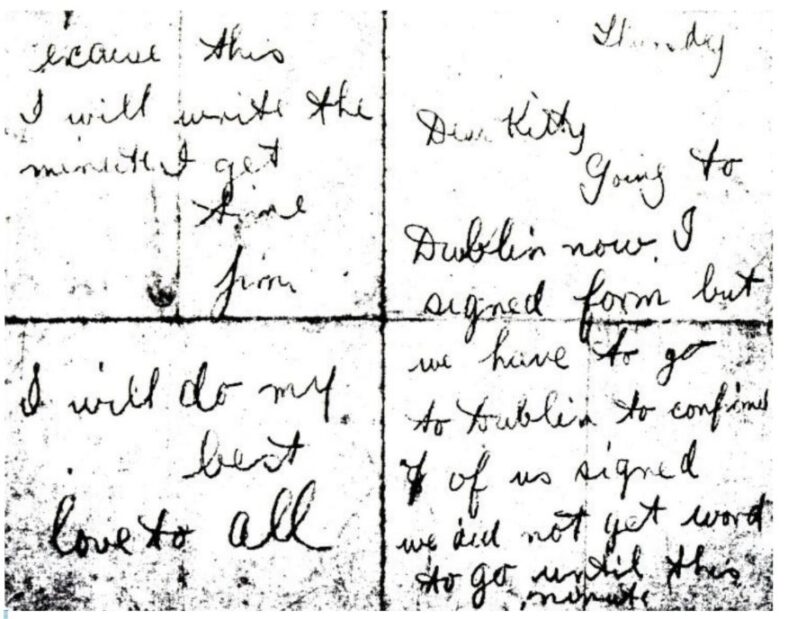 Thursday
Dear Kitty
Going to
Dublin now. I
signed form but
we have to go
to Dublin to
of us signed
we did not get word
to go until this
minute
excuse this
I will write the
minute I get
time
Jim
I will do my
best
love to all